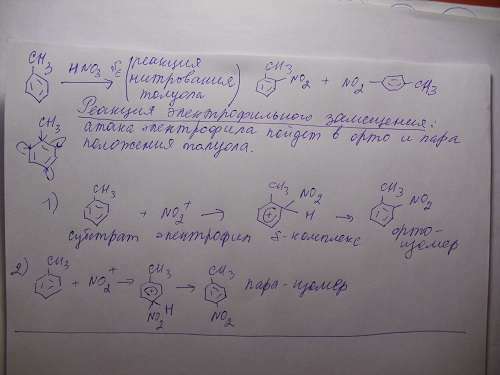 CH3 CH3 CH3
HNO3 (реакция нитрования толуола) NO2 + NO2 CH3
Реакция электрофильного замещения:
атака электрофила пойдет в орто и пара
положения толуола.
CH3
1) CH3 + NO2+ → CH3 NO2 H → CH3 NO2
субстрат электрофил σ-комплекс орто-
изомер
2) CH3 + NO2+ → CH3 NO2 H → CH3 NO2 пара-изомер